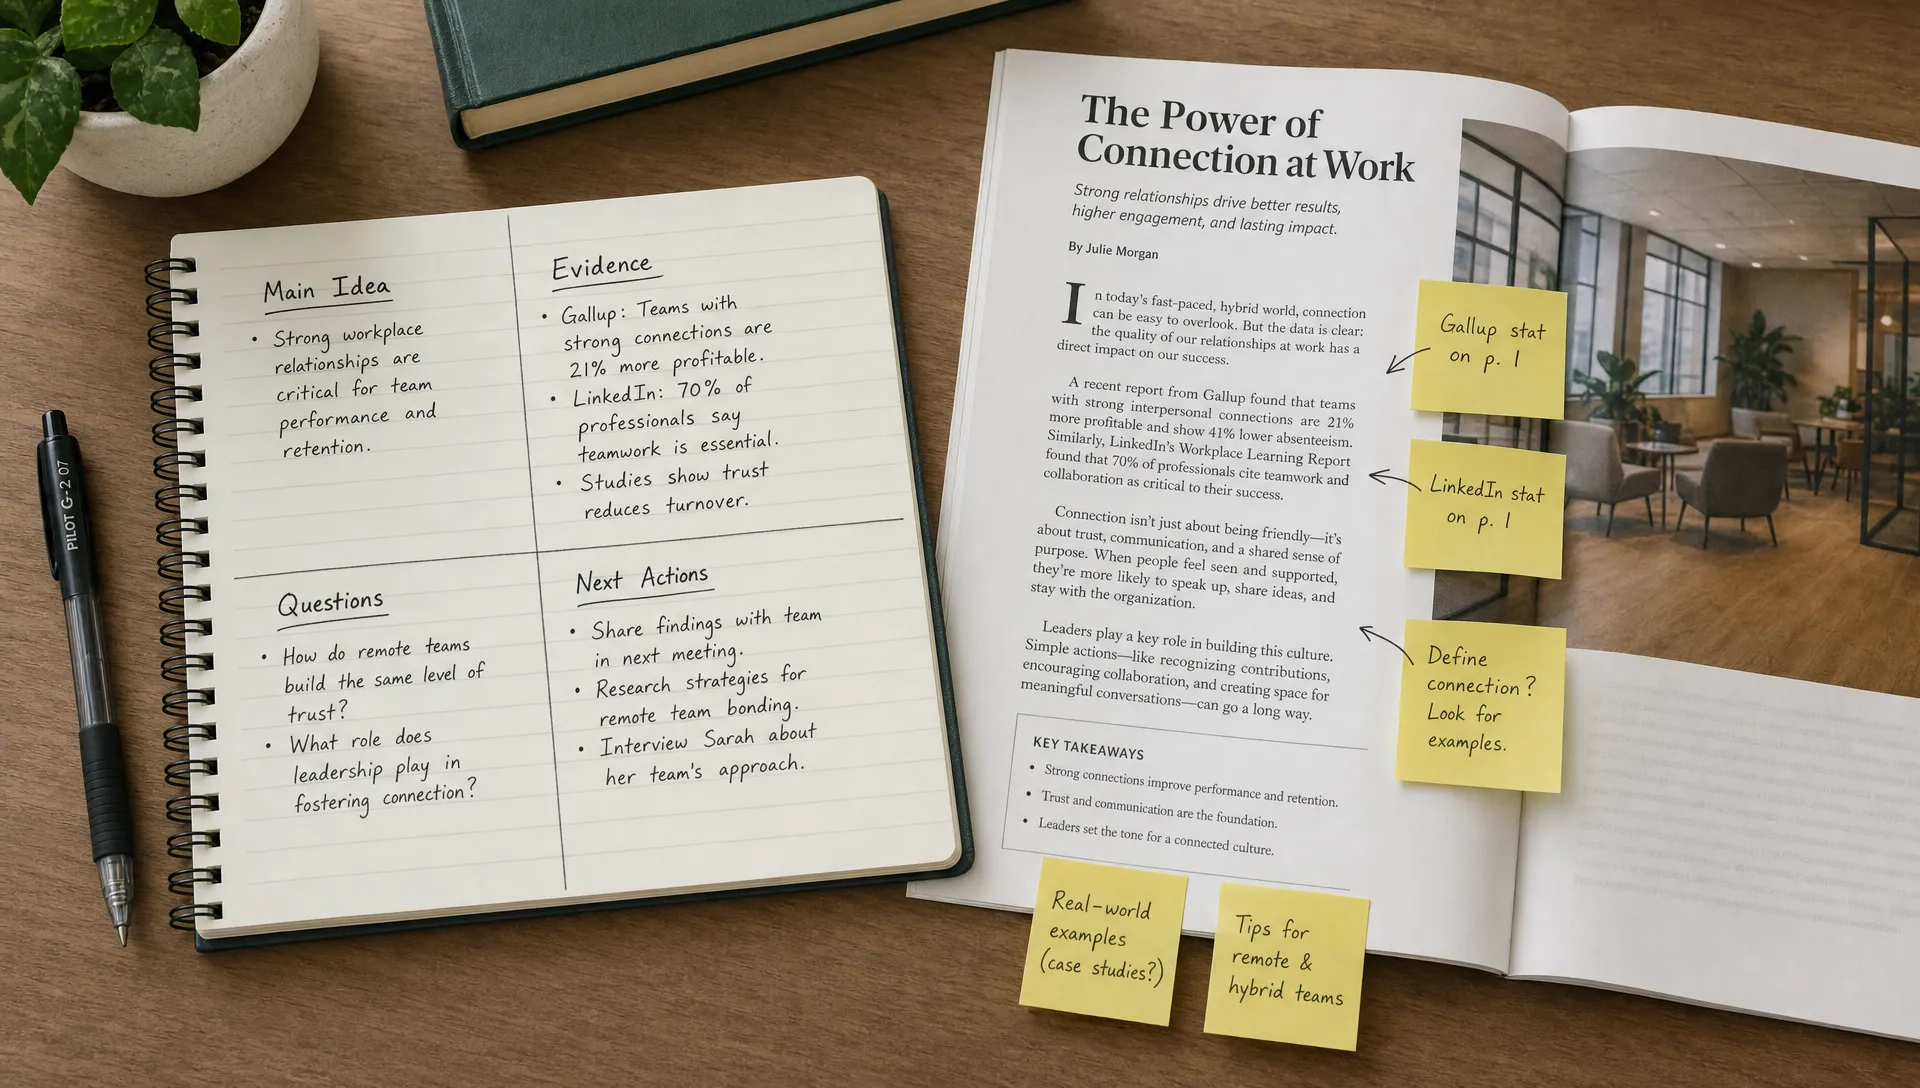 PILOT G-2 07
Main Idea
• Strong workplace
relationships are
critical for team
performance and
retention.
Evidence
• Gallup: Teams with
strong connections are
21% more profitable.
• LinkedIn: 70% of
professionals say
teamwork is essential.
• Studies show trust
reduces turnover.
Questions
• How do remote teams
build the same level of
trust?
• What role does
leadership play in
fostering connection?
Next Actions
• Share findings with team
in next meeting.
• Research strategies for
remote team bonding.
• Interview Sarah about
her team's approach.
The Power of
Connection at Work
Strong relationships drive better results,
higher engagement, and lasting impact.
By Julie Morgan
In today's fast-paced, hybrid world, connection
can be easy to overlook. But the data is clear:
the quality of our relationships at work has a
direct impact on our success.
A recent report from Gallup found that teams
with strong interpersonal connections are 21%
more profitable and show 41% lower absenteeism.
Similarly, LinkedIn's Workplace Learning Report
found that 70% of professionals cite teamwork and
collaboration as critical to their success.
Connection isn't just about being friendly—it's
about trust, communication, and a shared sense of
purpose. When people feel seen and supported,
they're more likely to speak up, share ideas, and
stay with the organization.
Leaders play a key role in building this culture.
Simple actions—like recognizing contributions,
encouraging collaboration, and creating space for
meaningful conversations—can go a long way.
KEY TAKEAWAYS
• Strong connections improve performance and retention.
• Trust and communication are the foundation.
• Leaders set the tone for a connected culture.
Gallup stat
on p. 1
LinkedIn stat
on p. 1
Define
connection?
Look for
examples.
Real-world
examples
(case studies?)
Tips for
remote &
hybrid teams